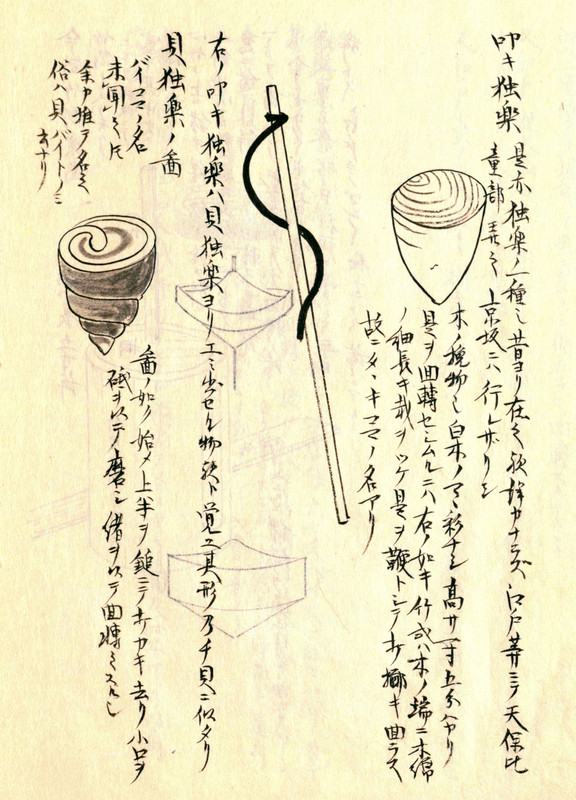 叩キ独楽 是亦独楽ノ一種也 昔ヨリ在之歟詳カナラズ 江戸専ニテ天保比
童部弄之 京坂ニハ行レザリシ
木ノ挽物也 白木ノマヽ彩ナシ 高サ一寸五分余リ
是ヲ回轉セシムルニハ右ノ如キ竹或ハ木ノ端ニ木綿
ノ細長キ裁ヲツケ是ヲ鞭トシテ打擲キ回ラス
故ニタヽキコマノ名アリ
右ノ叩キ独楽ハ貝独楽ヨリ工ミ出セル物歟ト覚ユ 其形乃チ貝ニ似タリ
貝独楽ノ図
バイコマノ名
未聞之氏
余ガ推テ名之
俗ハ貝バイトノミ
云ナリ
図ノ如ク始メ上半ヲ鎚ニテ打カキ去リ小口ヲ
砥ヲ以テ磨シ緒ヲ以テ回轉ミスル也